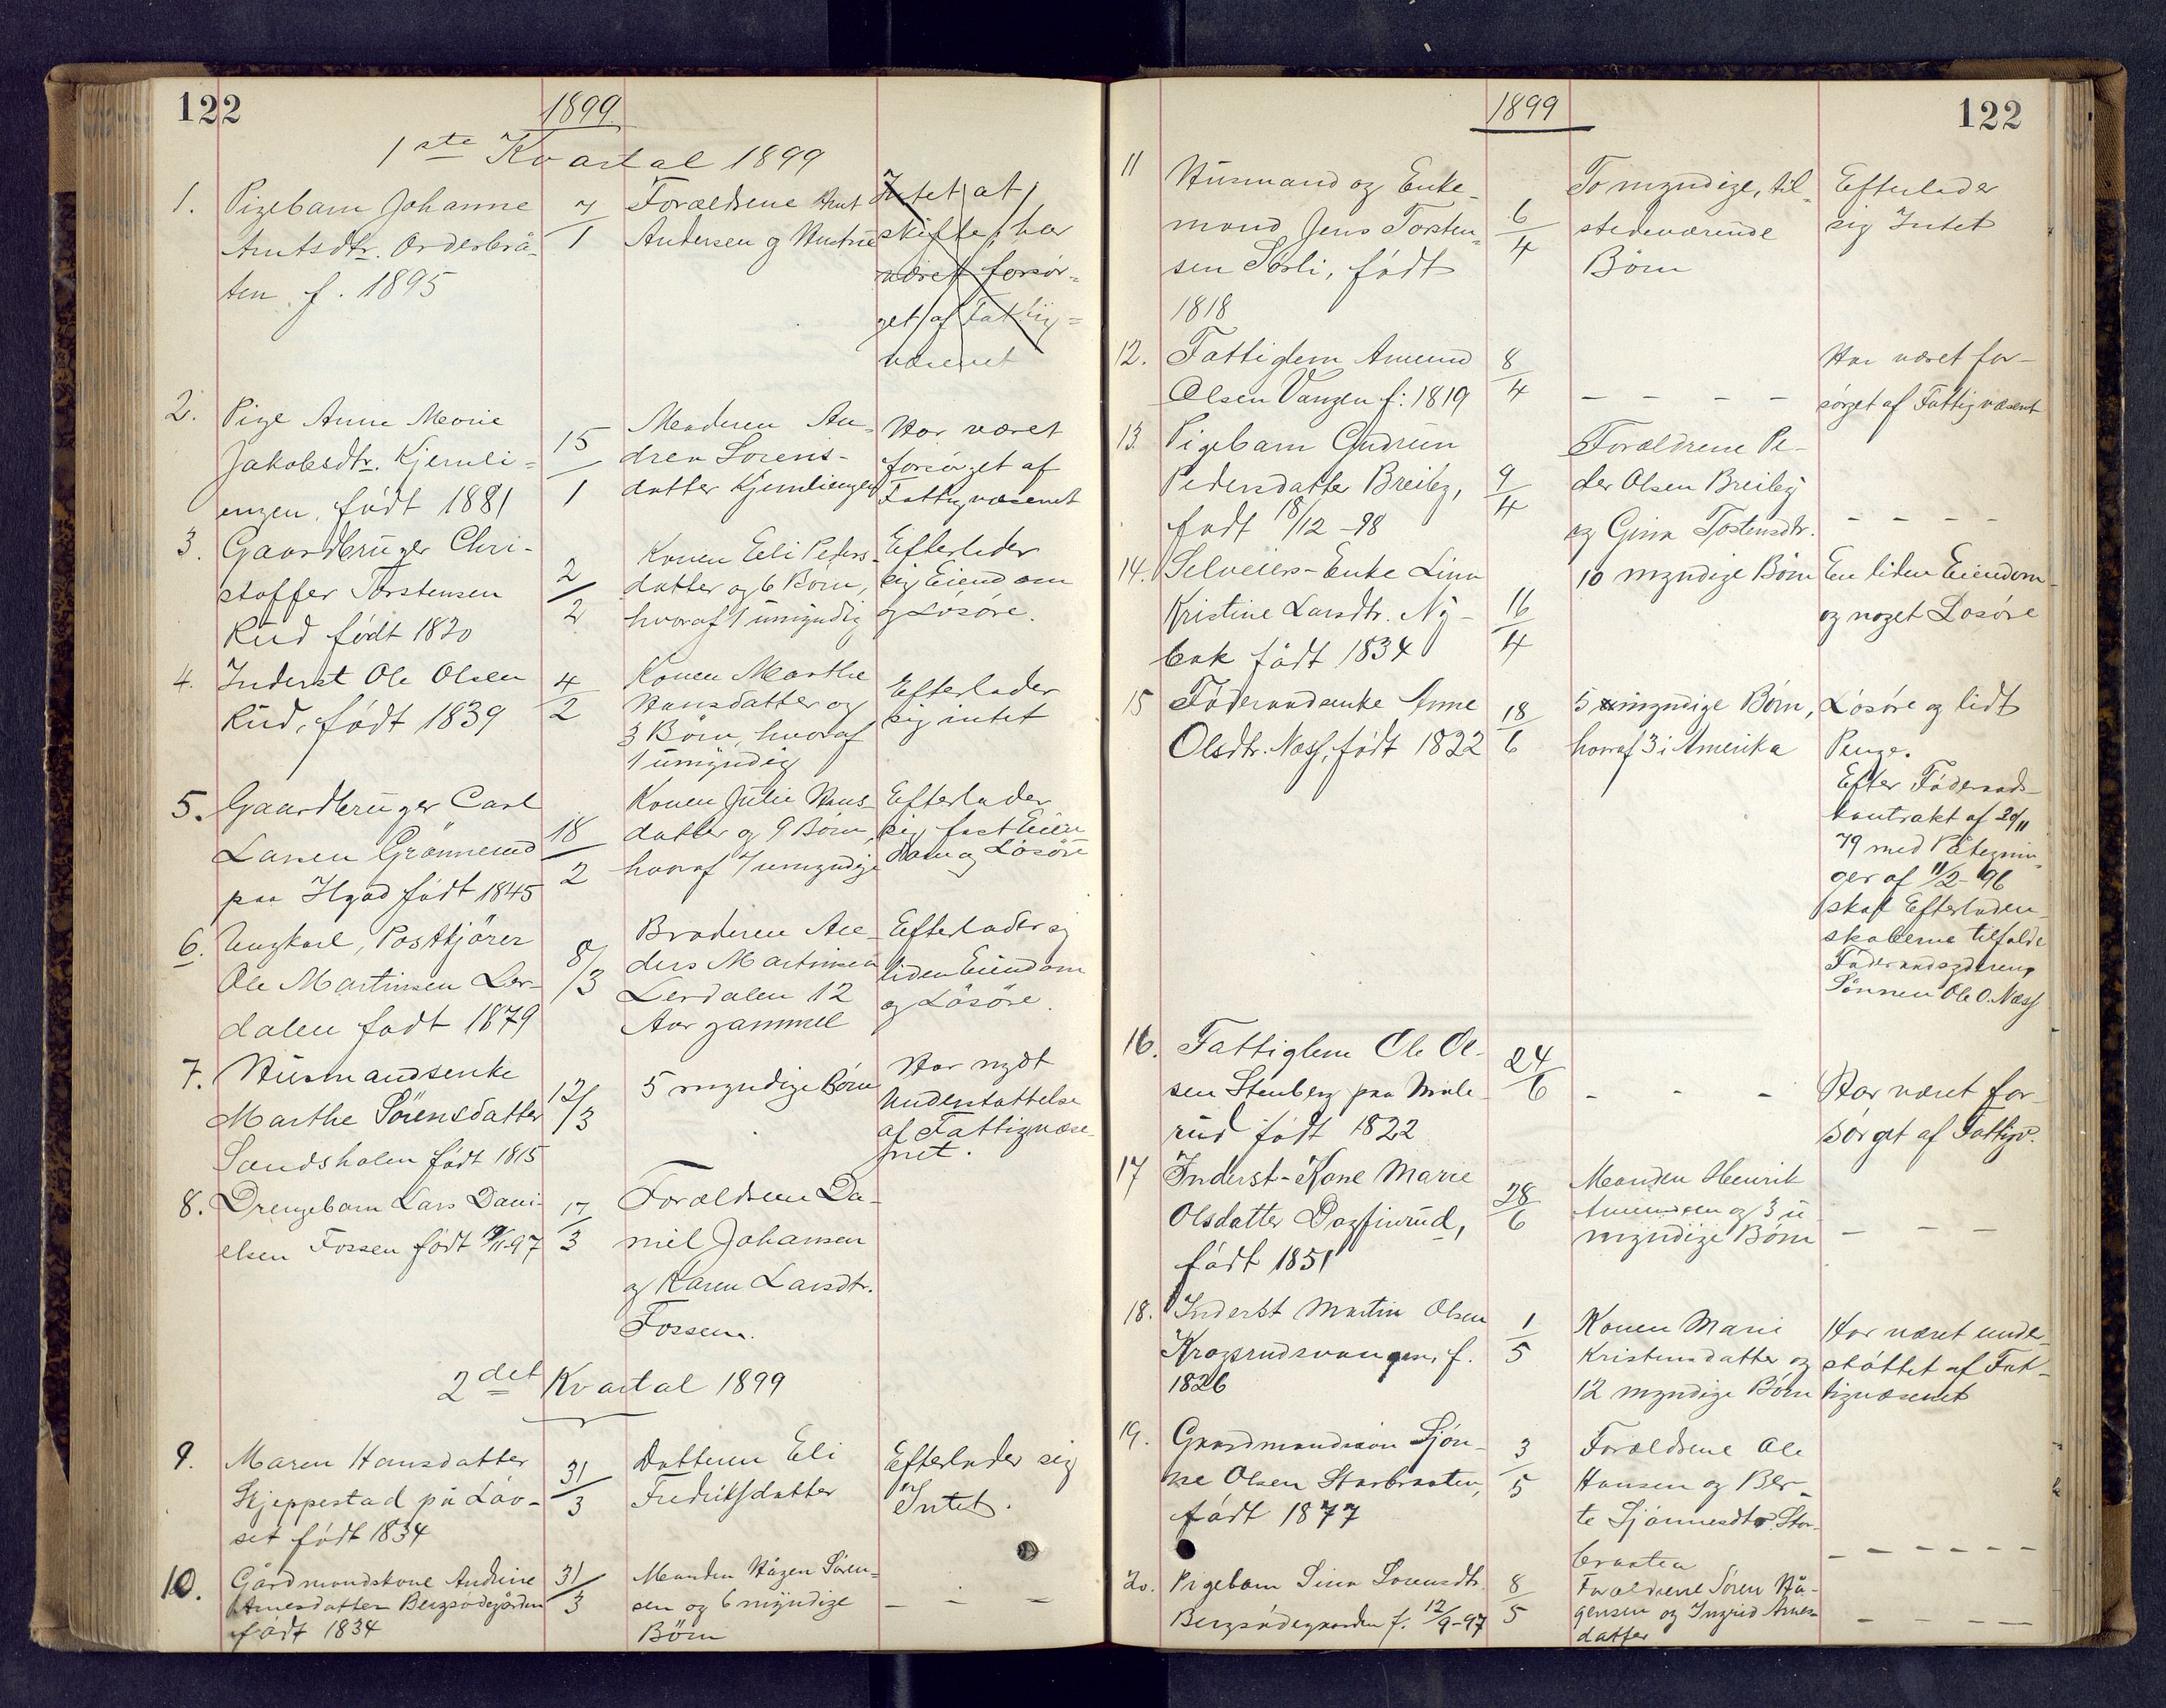 122
1899
1ste Kvartal 1899
1.
Pigebarn Johanne
Amtsdtr. Orderbrå-
ten f. 1895
7/1
Forældrene Amt
Andersen og Hustru
Intet at
skifte, har
været forsør-
get af Fattig-
væsenet
2.
Pige Anne Marie
Jakobsdtr. Kjernli-
engen, født 1881
15/1
Moderen An-
drea Sorens-
datter Kjernliengen
Har været
forsørget af
Fattigvæsenet
3.
Gaardbruger Chri-
stoffer Torstensen
Rud født 1820
2/2
Konen Eeli Peders-
datter og 6 Born,
hvoraf 1 umyndig
Efterlader
sig Eiendom
og Løsøre.
4.
Inderst Ole Olsen
Rud, født 1839
4/2
Konen Marthe
Hansdatter og
3 Börn, hvoraf
1 umyndig
Efterlader
sig intet
5.
Gaardbruger Carl
Larsen Grönnerud
paa født 1845
18/2
Konen Julie Hans-
datter og 9 Börn,
hvoraf umyndige
Efterlader
sig fast Eien
dom og Løsøre
6.
Ungkarl, Postkjörer
Ole Martinsen Ler-
dalen født 1879
8/3
Broderen An-
ders Martinsen
Lerdalen 12
Aar gammel
Efterlader sig
liden Eiendom
og Løsøre.
7.
Husmandsenke
Marthe Sörensdatter
Sandsholen født 1815
12/3
5 myndige Børn
Har nydt
Understøttelse
af Fattigvæse-
net.
8.
Drengebarn Lars Dani-
elsen Fossen født 97
17/3
Forældrene Da-
niel Johansen
og Karen Larsdtr.
Fossen.
2det Kvartal 1899
9.
Maren Hansdatter
Skjeppestad på Løv-
set født 1834
31/3
Datteren Eli
Fredriksdatter
Efterlader sig
Intet.
10.
Gårdmandskone Andrine
Arnesdatter Bergsødegården
født 1834
31/3
Manden Hågen Sören-
sen og 6 myndige
Börn
– – –
1899
122
11
Husmand og Enke-
mand Jens Torsten-
sen Sørli, født
1818
6/4
To myndige, til-
stedeværende
Börn
Efterlader
sig Intet
12.
Fattiglem Amund
Olsen Vangen f. 1819
8/4
– – – –
Har været for-
sörget af Fattigvæsent
13.
Pigebarn Gudrun
Pedersdatter Breiby,
født 18/12 -98
9/4
Forældrene Pe-
der Olsen Breiby
og Gina Tostensdtr.
– – – –
14.
Selveier-Enke Lina
Kristine Larsdtr. Ny-
bak født 1834
16/4
10 myndige Børn
En liden Eiendom
og noget Løsöre
15
Föderaadsenke Anne
Olsdtr. Næss, født 1822
18/6
5 myndige Børn,
hvoraf 3 i Amerika
Løsøre og lidt
Penge.
Efter Föderaads-
kontrakt af 20/11
79 med Påtegnin-
ger af 11/2-96
skal Efterladen-
skaberne tilfalde
Föderaadsyderen,
Sönnen Ole O. Næss
16.
Fattiglem Ole Ol-
sen Stenberg paa Mule-
rud født 1822
24/6
- - -
Har været for-
sørget af Fattigv.
17
Inderst-Kone Marie
Olsdatter Dagfinrud,
født 1851
28/6
Manden Henrik
Amundsen og 3 u-
myndige Börn
– – –
18.
Inderst Martin Olsen
Kragsrudsvangen, f.
1826
1/5
Konen Marie
Kristensdatter og
12 myndige Børn
Har været under-
støttet af Fat-
tigvæsenet
19.
Gaardmandssøn Sjøn-
ne Olsen Storbraaten,
født 1877
3/5
Forældrene Ole
Hansen og Ber-
te Sjönnesdtr. Stor-
braaten
– – – – – –
20.
Pigebarn Lina Sorensdtr.
Bergsødegaarden f. 12/9-97
8/5
Forældrene Sören Hå-
gensen og Ingrid Arnes-
datter
– – – –